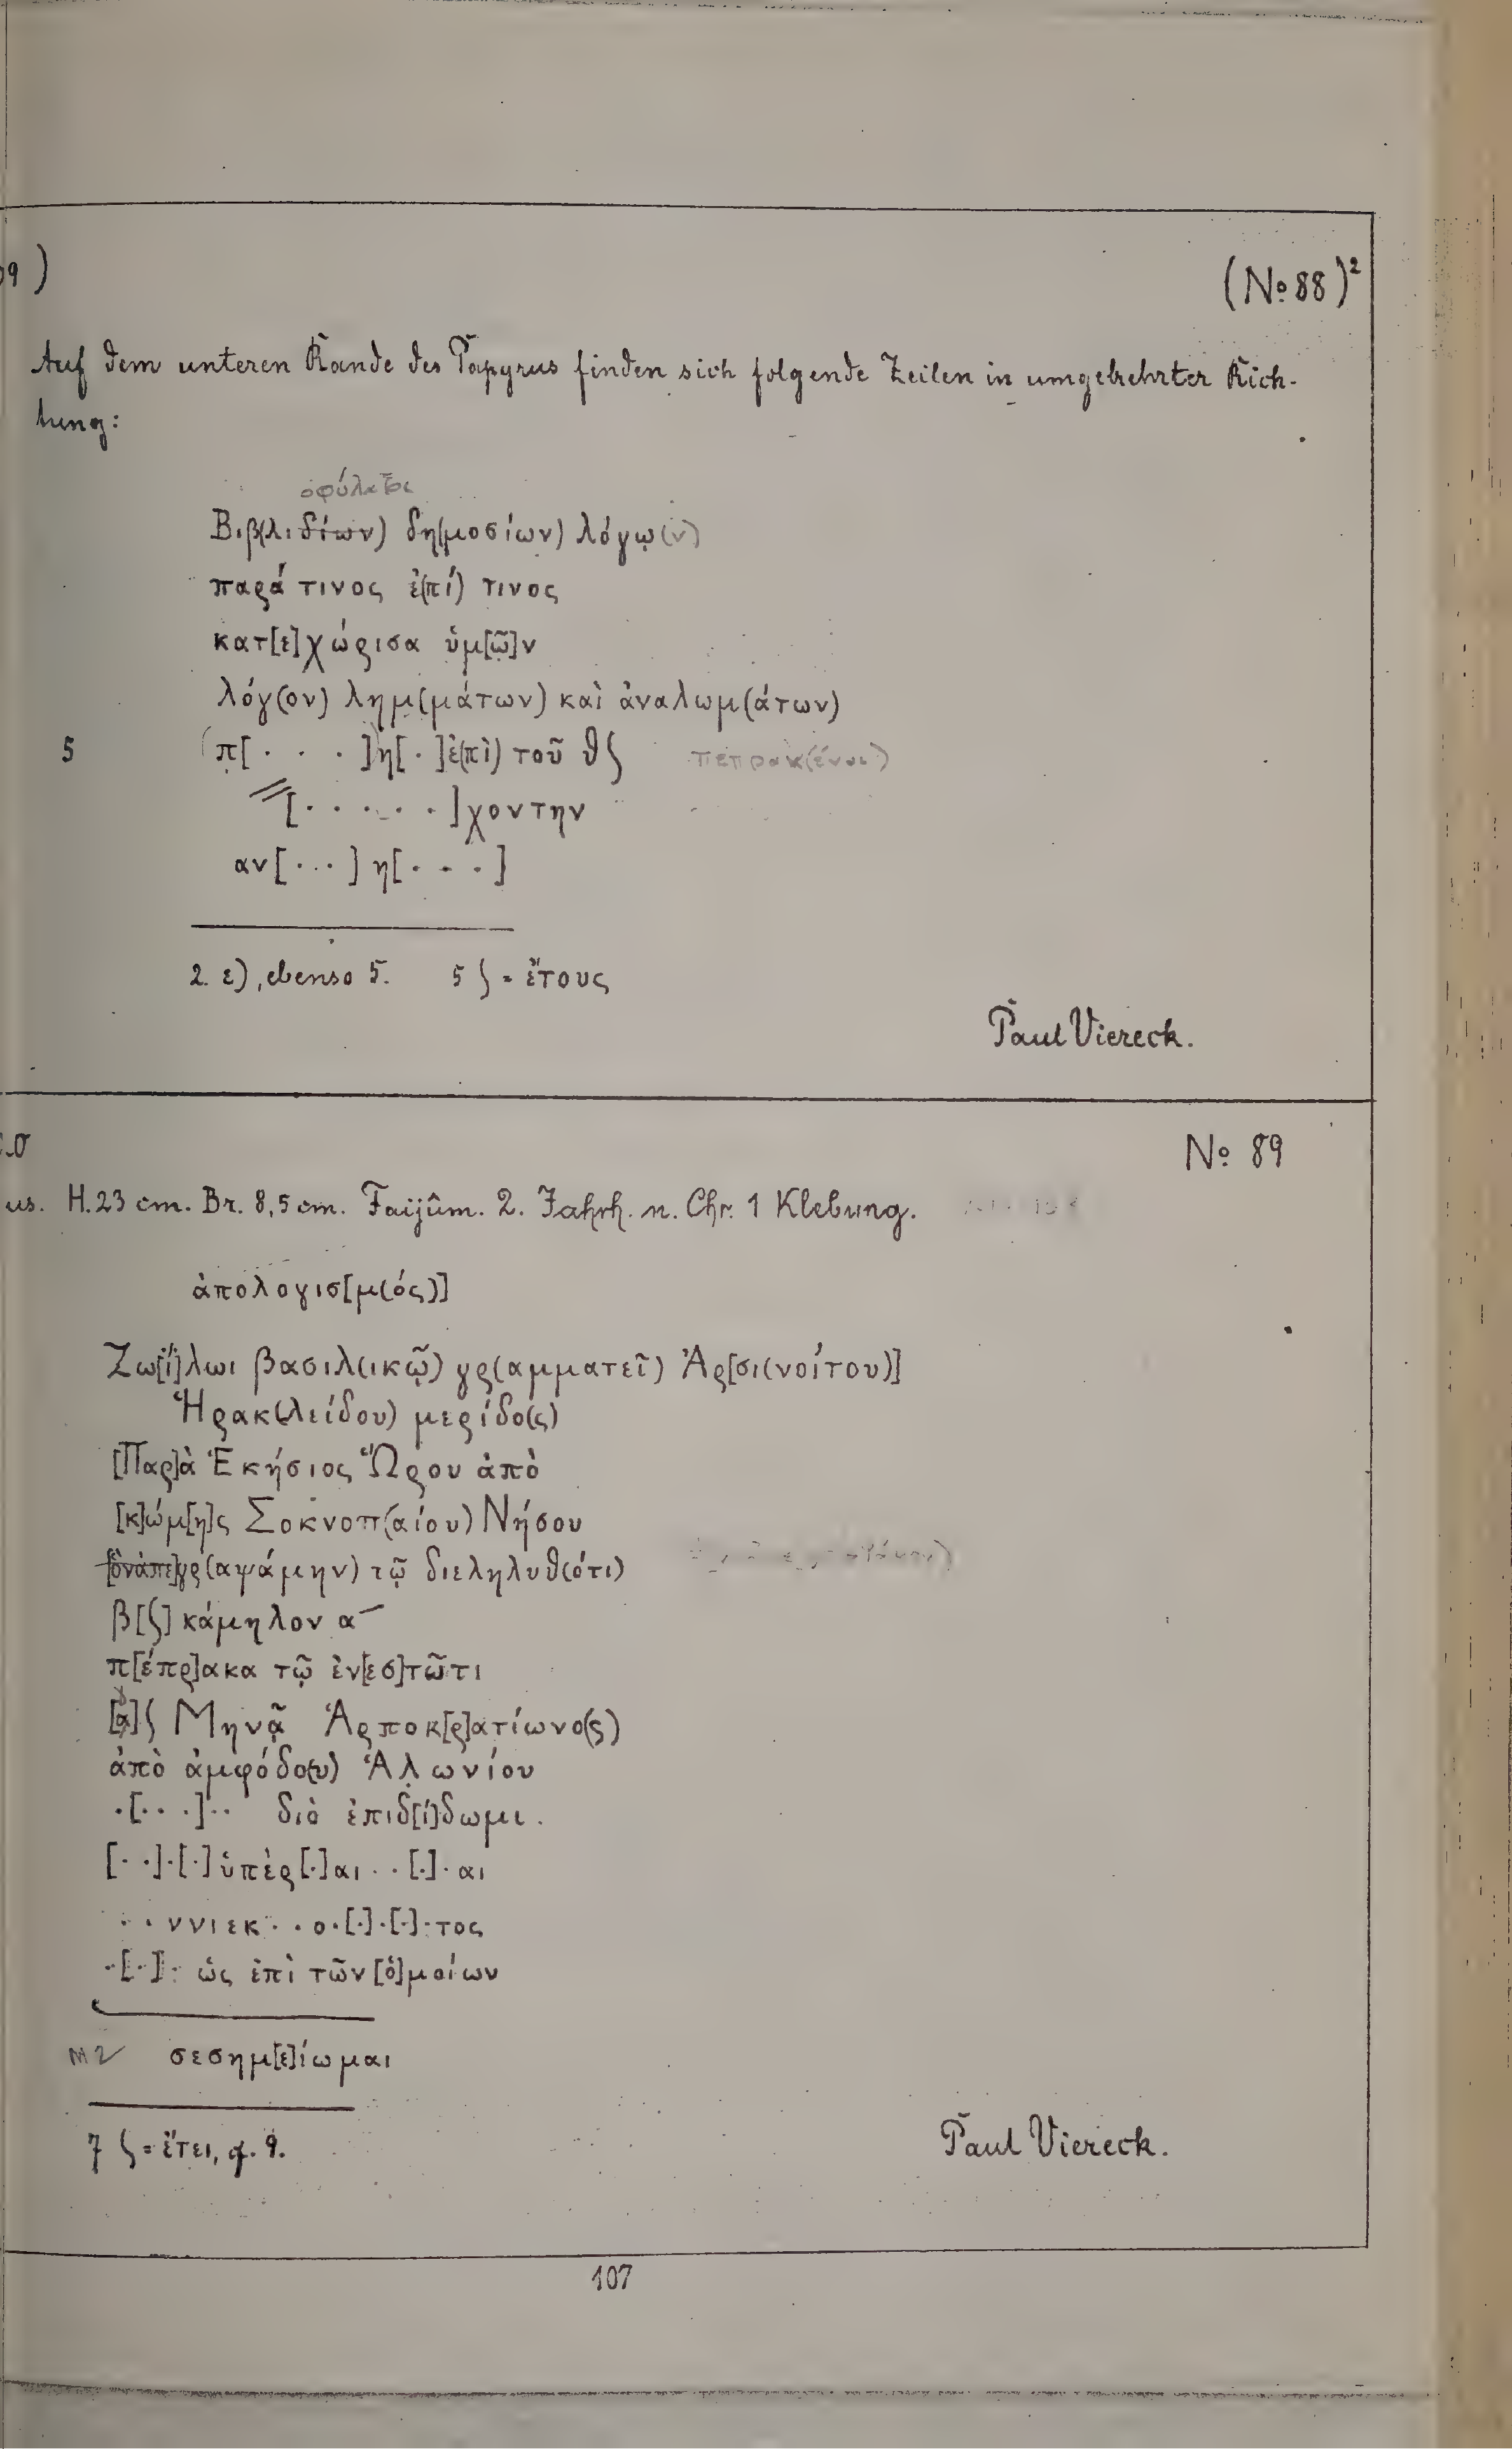 9)
(No 88)²
Auf dem unteren Rande des Papyrus finden sich folgende Zeilen in umgekehrter Rich-
tung:
οφύλαξι
Βιβ(λιδίων) δη(μοσίων) λόγω(ν)
παρά τινος ἐ(πί) τινος
κατ[ε]χώρισα ὑμ[ῶ]ν
λόγ(ον) λημ(μάτων) καὶ ἀναλωμ(άτων)
5 π[· · ·]η[·]ἐ(πὶ) τοῦ θ ʃ πεπρακ(έναι)
[· · · · ·]χοντην
αν[· · ·] η[· · ·]
2. ε), ebenso 5. 5 ʃ = ἔτους
Paul Viereck.
No 89
us. H. 23 cm. Br. 8,5 cm. Faijûm. 2. Jahrh. n. Chr. 1 Klebung.
ἀπολογισ[μ(ός)]
Ζω[ί]λωι βασιλ(ικῷ) γρ(αμματεῖ) Ἀρ[σι(νοίτου)]
Ἡρακ(λείδου) μερίδο(ς)
[Παρ]ὰ Ἑκήσιος Ὥρου ἀπὸ
[κ]ώμ[η]ς Σοκνοπ(αίου) Νήσου
[ὃν ἀπε]γρ(αψάμην) τῷ διεληλυθ(ότι)
β[ʃ] κάμηλον α–
π[έπρ]ακα τῷ ἐν[εσ]τῶτι
[α]ʃ Μηνᾷ Ἁρποκ[ρ]ατίωνο(ς)
ἀπὸ ἀμφόδο(υ) Ἁλωνίου
·[· · ·]· · διὸ ἐπιδ[ί]δωμι.
[· ·]·[·] ὑπὲρ[·]αι · · [·]· αι
· · ννιεκ · · ο·[·]·[·]·τος
·[·]· ὡς ἐπὶ τῶν [ὁ]μοίων
M2 σεσημ[ε]ίωμαι
7 ʃ = ἔτει, cf. 9.
Paul Viereck.
107